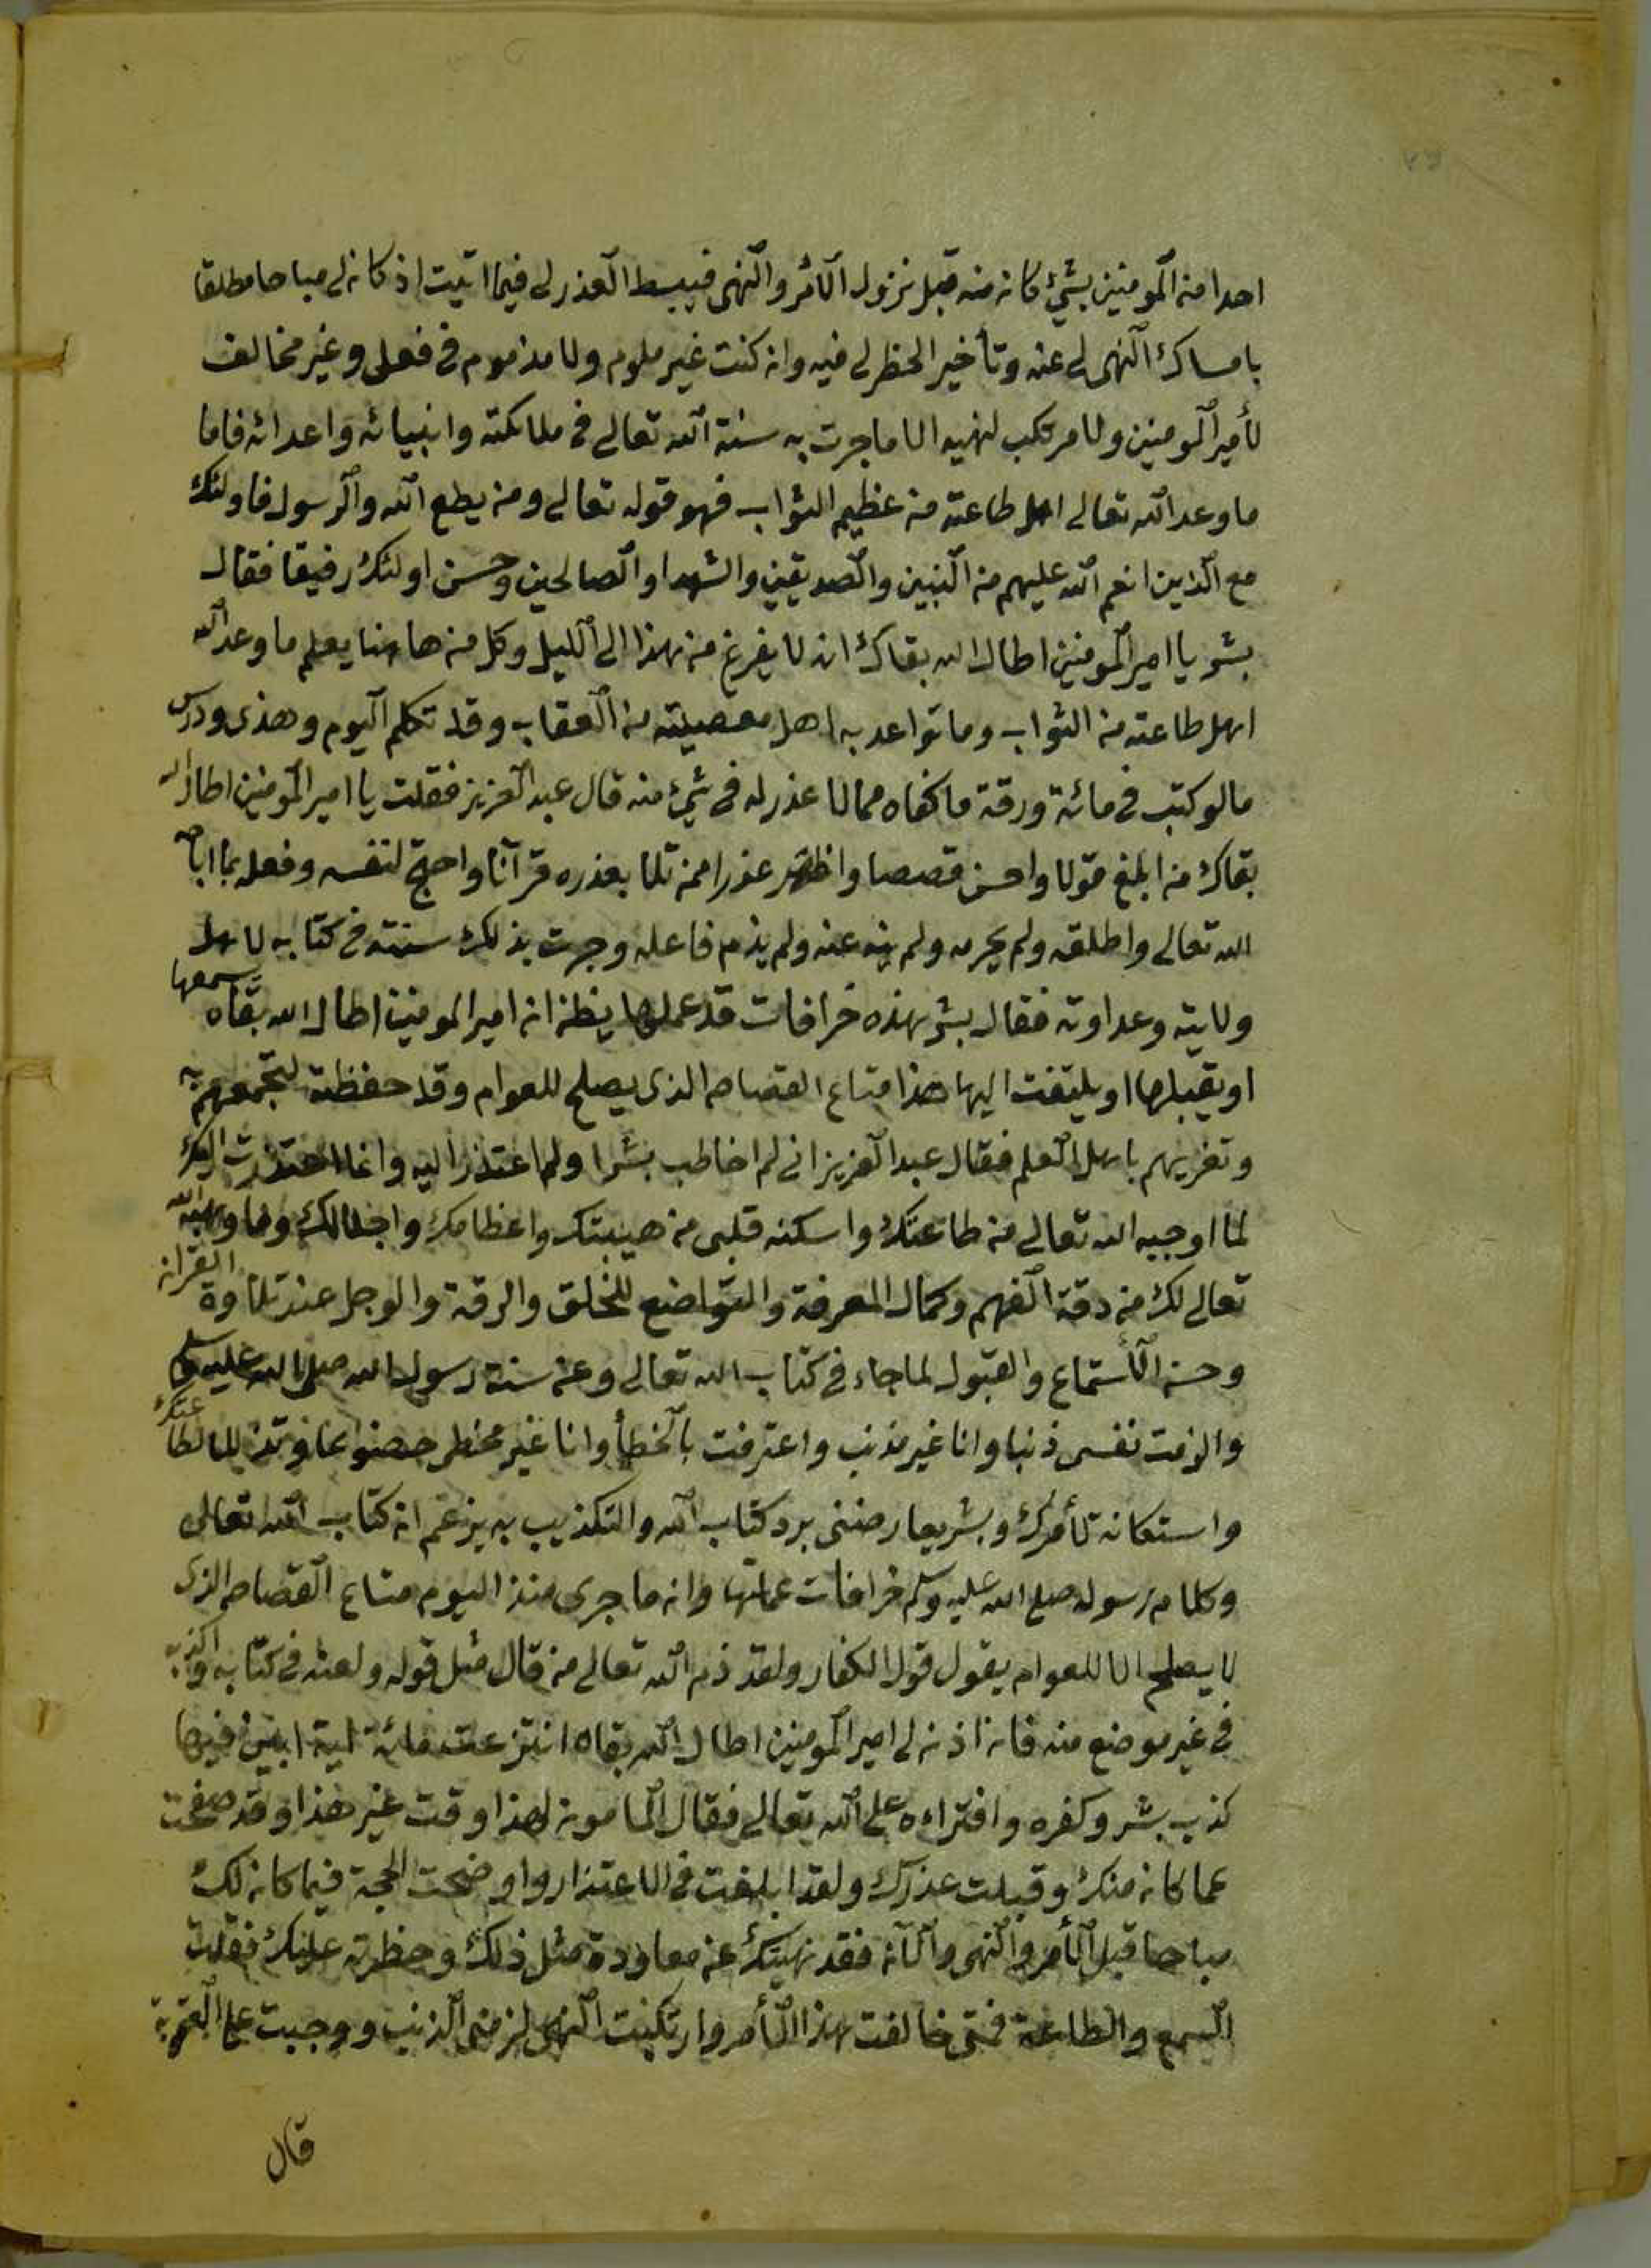 احدا من المومنين بشئ كان منه قبل نزول الامر والنهى فيبسط العذر لى فيما اتيت اذ كان لى مباحا مطلقا
بامساك النهى لى عنه وتأخير الحظر لى فيه وان كنت غير ملوم ولا مذموم فى فعلى وغير مخالف
لأمير المومنين ولا مرتكب لنهيه الا ما جرت به سنة الله تعالى فى ملائكته وانبيائه واعدائه فاما
ما وعد الله تعالى اهل طاعته من عظيم الثواب فهو قوله تعالى ومن يطع الله والرسول فاولئك
مع الذين انعم الله عليهم من النبين والصديقين والشهدا والصالحين وحسن اولئك رفيقا فقال
بشر يا امير المومنين اطال الله بقاك ان لا يفرغ من هذا الى الليل وكل من هاهنا يعلم ما وعد الله
اهل طاعته من الثواب وما تواعد به اهل معصيته من العقاب وقد تكلم اليوم وهذى ودرس
ما لو كتب فى مائة ورقة ما كفاه مما لا عذر له فى شئ منه قال عبد العزيز فقلت يا امير المومنين اطال الله
بقاك من ابلغ قولا واحسن قصصا واظهر عذرا ممن تلا بعذره قرآنا واحتج لنفسه وفعله بما اباحه
الله تعالى واطلقه ولم يحرمه ولم ينه عنه ولم يذم فاعله وجرت بذلك سنته فى كتابه لاهل
ولايته وعداوته فقال بشر هذه خرافات قد عملها يظن ان امير المومنين اطال الله بقاه يسمعها
او يقبلها او يلتفت اليها هذا متاع القصاص الذى يصلح للعوام وقد حفظته لتجمعهم به
وتغريهم باهل العلم فقال عبد العزيز انى لم اخاطب بشرا ولم اعتذر اليه وانما اعتذرت اليك
لما اوجبه الله تعالى من طاعتك واسكنه قلبى من هيبتك واعظامك واجلالك وما وهبه الله
تعالى لك من دقة الفهم وكمال المعرفة والتواضع للخلق والرقة والوجل عند تلاوة القران
وحسن الأستماع والقبول لما جاء فى كتاب الله تعالى وعن سنة رسول الله صلى الله عليه وسلم
والزمت نفسى ذنبا وانا غير مذنب واعترفت بالخطأ وانا غير مخطر خضوعا وتذللا لطاعتك
واستكانة لأمرك وبشر يعارضنى برد كتاب الله والتكذيب به يزعم ان كتاب الله تعالى
وكلام رسوله صلى الله عليه وسلم خرافات عملتها وان ما جرى منذ اليوم متاع القصاص الذى
لا يصلح الا للعوام يقول قول الكفار ولقد ذم الله تعالى من قال مثل قوله ولعنه فى كتابه واكذبه
فى غير موضع منه فان اذن لى امير المومنين اطال الله بقاه انتزعت مائة اية ابين فيها
كذب بشر وكفره وافتراءه على الله تعالى فقال المامون لهذا وقت غير هذا وقد صفحت
عما كان منك وقبلت عذرك ولقد ابلغت فى الاعتذار واوضحت الحجة فيما كان لك
مباحا قبل الأمر والنهى والآن فقد نهيتك عن معاودة مثل ذلك وحظرته عليك فقلت
السمع والطاعة فمتى خالفت هذا الأمر وارتكبت النهى لزمنى الذنب ووجبت على العقوبة
قال